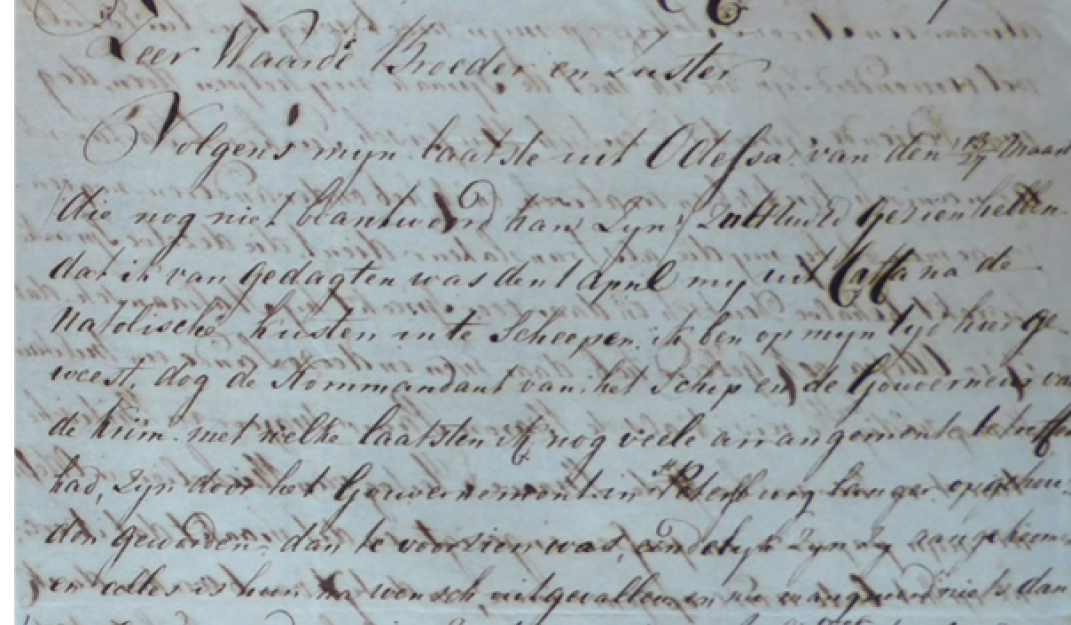 Zeer Waarde Broeder en Zuster
Volgens myn laatste uit Odessa van den 15/27 Maart
die nog niet beantwoord kan Zyn, Zult UwEd gezien hebben
dat ik van gedagten was den 1 April my uit Caffa na de
Natolische kusten in te Scheepen. ik ben op myn tyd hier ge
weest, dog de Kommandant van het Schip en de Gouverneur van
de Krim met welke laatsten ik nog veele arrangementen betreffen
had, Zyn door het Gouvernement in St Petersburg langer opgehou
den geworden dan te voorzien was, eindelyk Zyn Zy aangekomen
en alles is hun na wensch uitgevallen en nu mangueerd niets dan